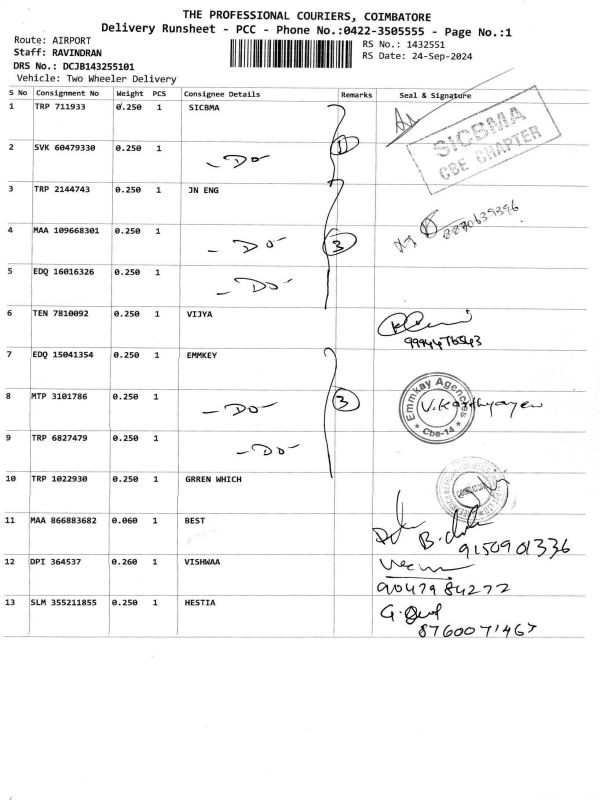 THE PROFESSIONAL COURIERS, COIMBATORE
Delivery Runsheet - PCC - Phone No.:0422-3505555 - Page No.:1
Route: AIRPORT
RS No.: 1432551
Staff: RAVINDRAN
RS Date: 24-Sep-2024
DRS No.: DCJB143255101
Vehicle: Two Wheeler Delivery
S No Consignment No Weight PCS Consignee Details Remarks Seal & Signature
1 TRP 711933 0.250 1 SICBMA
SICBMA
CBE CHAPTER
2 SVK 60479330 0.250 1 - Do - 1
3 TRP 2144743 0.250 1 JN ENG
8870639396
4 MAA 109668301 0.250 1 - Do - 3
5 EDQ 16016326 0.250 1 - Do -
6 TEN 7810092 0.250 1 VIJYA
7 EDQ 15041354 0.250 1 EMMKEY
8 MTP 3101786 0.250 1 - Do - 3
Emmkay Agencies
V. Karthyayen
Cbe-14
9 TRP 6827479 0.250 1 - Do -
10 TRP 1022930 0.250 1 GRREN WHICH
11 MAA 866883682 0.060 1 BEST
9150901336
12 DPI 364537 0.260 1 VISHWAA
9047984272
13 SLM 355211855 0.250 1 HESTIA
8760071467